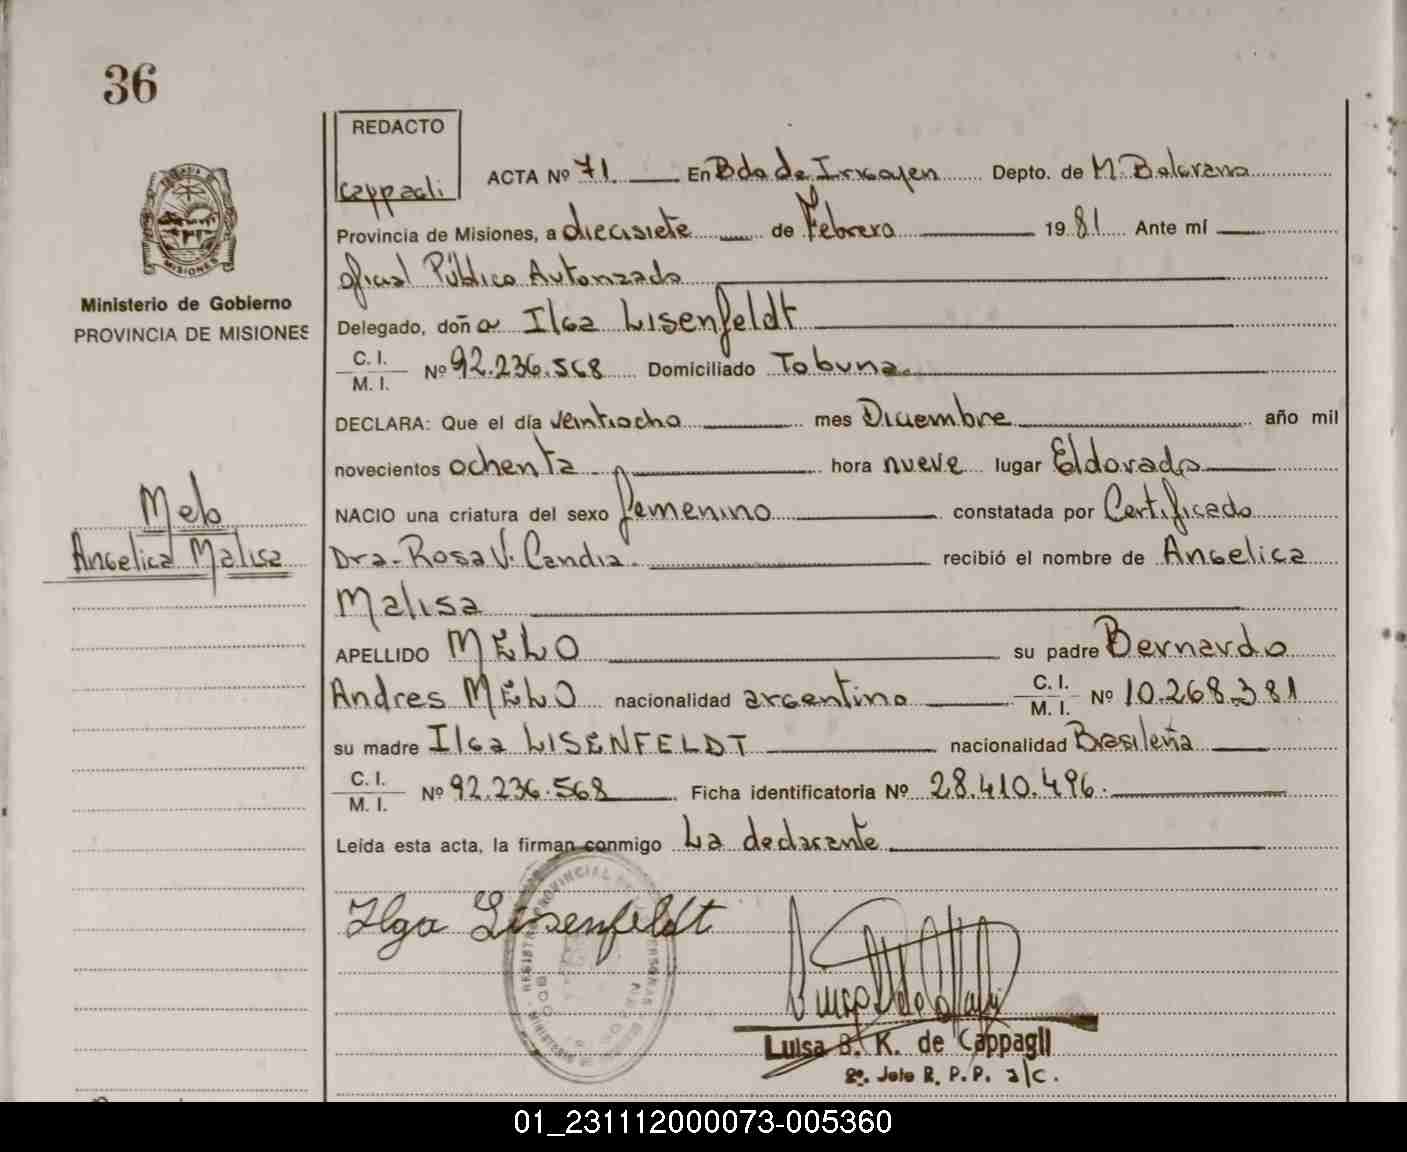 36
REDACTO
cappagli
ACTA Nº 71. En Bdo de Irigoyen Depto. de M. Belgrano
Provincia de Misiones, a diecisiete de Febrero 19 81 Ante mí
oficial Público Autorizado
Delegado, doña Ilga Lisenfeldt
C. I.
M. I.
Nº 92.236.568 Domiciliado Tobuna.
DECLARA: Que el día veintiocho mes Diciembre año mil
novecientos ochenta hora nueve lugar Eldorado
NACIO una criatura del sexo femenino constatada por Certificado
Dra. Rosa V. Candia. recibió el nombre de Angelica
Malisa
APELLIDO MELO su padre Bernardo
Andres MELO nacionalidad argentino C. I.
M. I. Nº 10.268.381
su madre Ilga LISENFELDT nacionalidad Brasileña
C. I.
M. I.
Nº 92.236.568 Ficha identificatoria Nº 28.410.496.
Leída esta acta, la firman conmigo La declarante
Ilga Lisenfeldt
Luisa B. K. de Cappagli
2º. Jefe R. P. P. a/c.
MISIONES
Ministerio de Gobierno
PROVINCIA DE MISIONES
Melo
Angelica Malisa
01_231112000073-005360